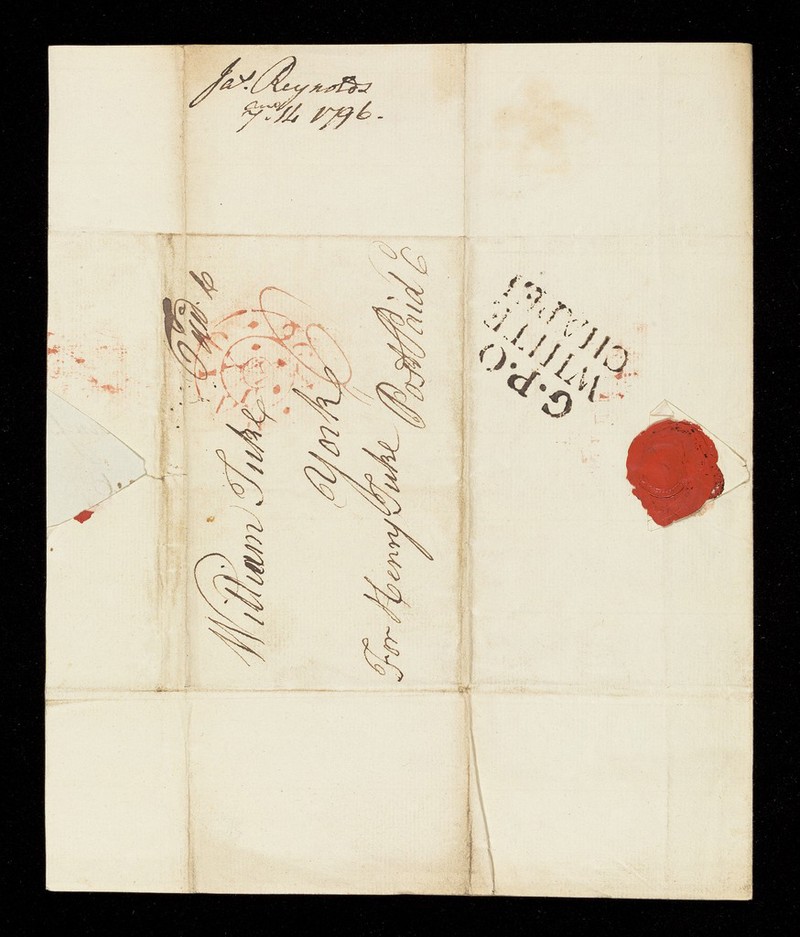 Jas. Reynolds
7mo. 14 1796.
William Tuke
York
For Henry Tuke Post Paid 6
G.P.O
WHITE
CHAPEL